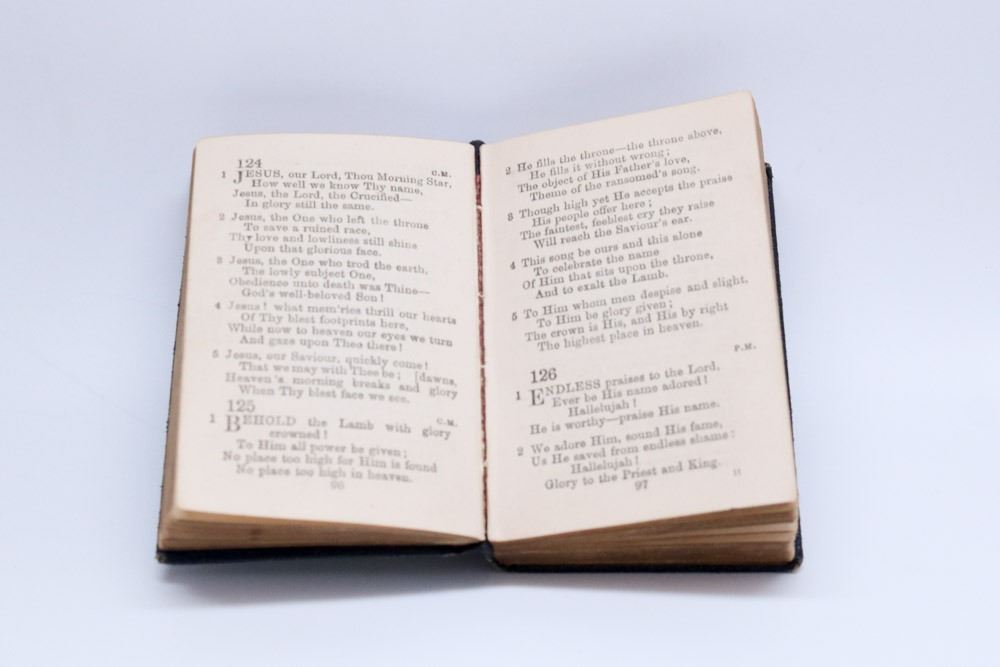 124
C.M.
1 JESUS, our Lord, Thou Morning Star,
How well we know Thy name,
Jesus, the Lord, the Crucified—
In glory still the same.
2 Jesus, the One who left the throne
To save a ruined race,
Thy love and lowliness still shine
Upon that glorious face.
3 Jesus, the One who trod the earth,
The lowly subject One,
Obedience unto death was Thine—
God's well-beloved Son!
4 Jesus! what mem'ries thrill our hearts
Of Thy blest footprints here,
While now to heaven our eyes we turn
And gaze upon Thee there!
5 Jesus, our Saviour, quickly come!
That we may with Thee be; [dawns,
Heaven's morning breaks and glory
When Thy blest face we see.
125
C.M.
1 BEHOLD the Lamb with glory
crowned!
To Him all power be given;
No place too high for Him is found
No place too high in heaven.
96
2 He fills the throne—the throne above,
He fills it without wrong;
The object of His Father's love,
Theme of the ransomed's song.
3 Though high yet He accepts the praise
His people offer here;
The faintest, feeblest cry they raise
Will reach the Saviour's ear.
4 This song be ours and this alone
To celebrate the name
Of Him that sits upon the throne,
And to exalt the Lamb.
5 To Him whom men despise and slight,
To Him be glory given;
The crown is His, and His by right
The highest place in heaven.
P.M.
126
1 ENDLESS praises to the Lord,
Ever be His name adored!
Hallelujah!
He is worthy—praise His name.
2 We adore Him, sound His fame,
Us He saved from endless shame:
Hallelujah!
Glory to the Priest and King.
97